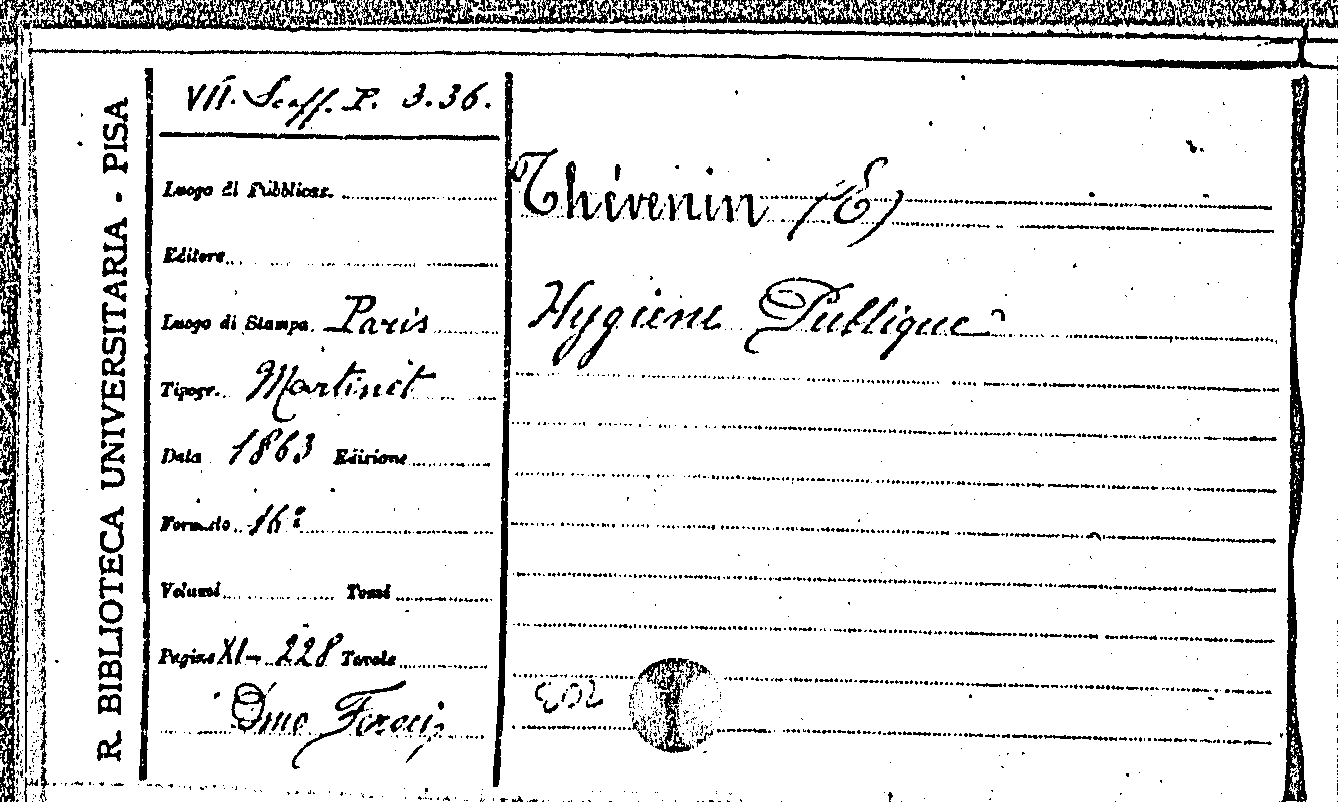 R. BIBLIOTECA UNIVERSITARIA - PISA
VII. Scaff. P. 3.36.
Luogo di Pubblicaz.
Editore
Luogo di Stampa. Paris
Tipogr. Martinet
Data 1863 Edizione
Formato 16º
Volumi Tomi
Pagine XI- 228 Tavole
Dono Feroci
Thévenin (E)
Hygiene Publique